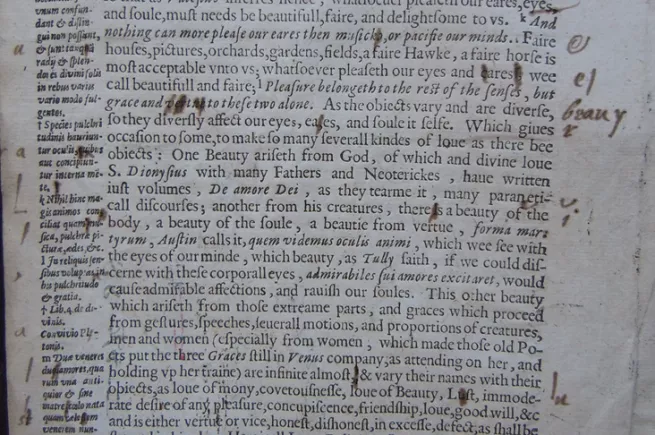 and soule, must needs be beautifull, faire, and delightsome to vs. k And
nothing can more please our eares then musicke, or pacifie our minds.. Faire
houses, pictures, orchards, gardens, fields, a faire Hawke, a faire horse is
most acceptable vnto vs; whatsoever pleaseth our eyes and eares, wee
call beautifull and faire; l Pleasure belongeth to the rest of the senses, but
grace and to these two alone. As the obiects vary and are diverse,
so they diversly affect our eyes, eares, and soule it selfe. Which giues
occasion to some, to make so many severall kindes of loue as there bee
obiects: One Beauty ariseth from God, of which and divine loue
S. Dionysius with many Fathers and Neoterickes, haue written
iust volumes, De amore Dei, as they tearme it, many paræneti-
call discourses; another from his creatures, there is a beauty of the
body, a beauty of the soule, a beautie from vertue, forma mar-
tyrum, Austin calls it, quem videmus oculis animi, which wee see with
the eyes of our minde, which beauty, as Tully saith, if we could dis-
cerne with these corporall eyes, admirabiles sui amores excitaret, would
cause admirable affections, and rauish our soules. This other beauty
which ariseth from those extreame parts, and graces which proceed
from gestures, speeches, seuerall motions, and proportions of creatures,
men and women (especially from women, which made those old Po-
ets put the three Graces still in Venus company, as attending on her, and
holding vp her traine) are infinite almost, & vary their names with their
obiects, as loue of mony, covetousnesse, loue of Beauty, Lust, immode-
rate desire of any pleasure, concupiscence, friendship, loue, good will, &c
and is either vertue or vice, honest, dishonest, in excesse, defect, as shall be
consun-
dant & distin-
gui non possunt,
& sunt tanquam
radij & splen-
dores divini solis
in rebus varijs
vario modo ful-
gentes.
† Species pulchri
tudinis hauriun-
tur oculis,
aut concipiun-
tur interna men-
te.
k Nihil hinc ma-
gis animos con
ciliat quam mu-
sica, pulchræ pi-
cturæ, ædes, &c.
l In reliquis sen-
sibus voluptas, in
his pulchritudo
& gratia.
† Lib. 4. de di-
vinis.
Convivio Pla-
tonis.
m Duæ veneres
duo amores, qua-
rum vna anti-
quior & sine
matre, cælo nata
quam cælestem
venerem nun-